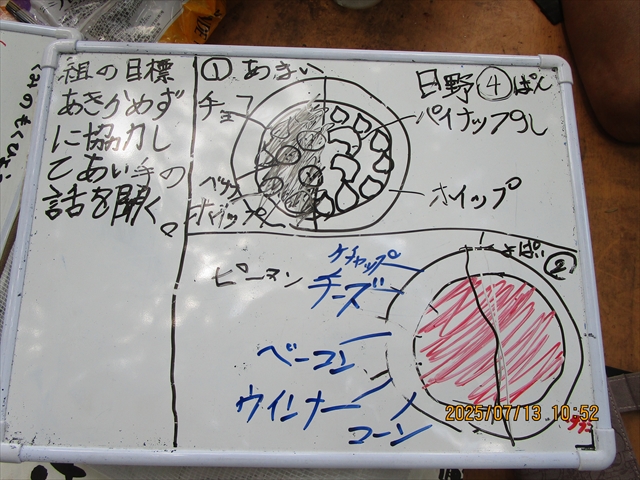 祖の目標
あきかめず
に協力し
てあい手の
話を聞く。
① あまい
日野④ぱん
チョコ
パイナップル
ホイップ
ホイップ
しょっぱい
②
ケチャップ
ピーマン
チーズ
ベーコン
ウインナー
コーン
2025/07/13 10:52